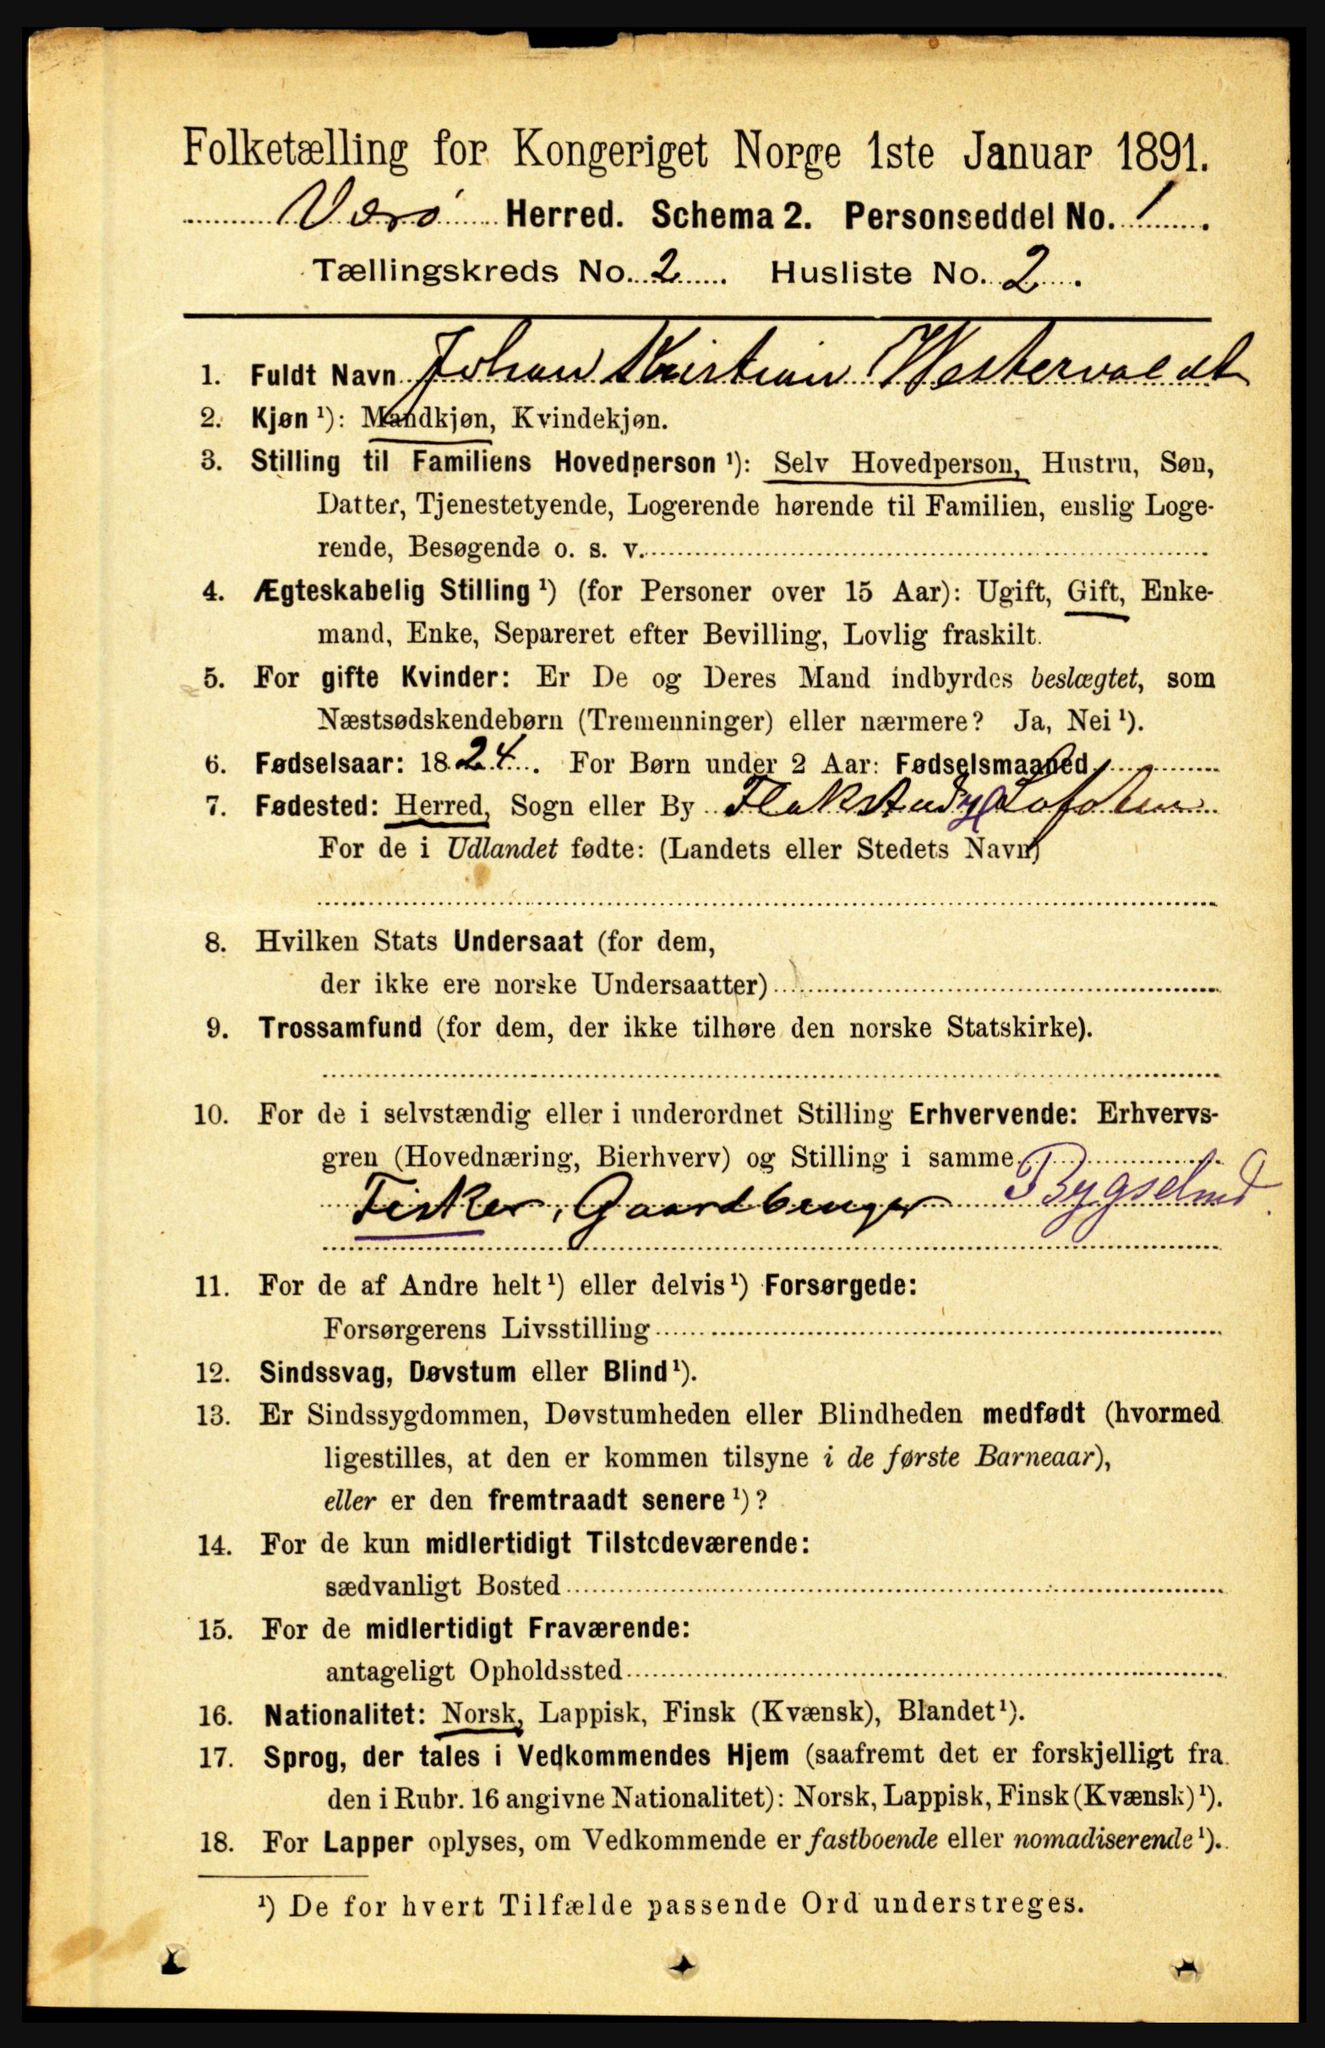 Folketælling for Kongeriget Norge 1ste Januar 1891.
Værø Herred. Schema 2. Personseddel No. 1.
Tællingskreds No. 2. Husliste No. 2.
1. Fuldt Navn Johan Kristian Westervaldt
2. Kjøn ¹): Mandkjøn, Kvindekjøn.
3. Stilling til Familiens Hovedperson ¹): Selv Hovedperson, Hustru, Søn,
Datter, Tjenestetyende, Logerende hørende til Familien, enslig Loge-
rende, Besøgende o. s. v.
4. Ægteskabelig Stilling ¹) (for Personer over 15 Aar): Ugift, Gift, Enke-
mand, Enke, Separeret efter Bevilling, Lovlig fraskilt.
5. For gifte Kvinder: Er De og Deres Mand indbyrdes beslægtet, som
Næstsødskendebørn (Tremenninger) eller nærmere? Ja, Nei ¹).
6. Fødselsaar: 1824. For Børn under 2 Aar: Fødselsmaaned
7. Fødested: Herred, Sogn eller By Flakstad Lofoten
For de i Udlandet fødte: (Landets eller Stedets Navn)
8. Hvilken Stats Undersaat (for dem,
der ikke ere norske Undersaatter)
9. Trossamfund (for dem, der ikke tilhøre den norske Statskirke).
10. For de i selvstændig eller i underordnet Stilling Erhvervende: Erhvervs-
gren (Hovednæring, Bierhverv) og Stilling i samme
Fisker, Gaardbruger Bygselmd.
11. For de af Andre helt ¹) eller delvis ¹) Forsørgede:
Forsørgerens Livsstilling
12. Sindssvag, Døvstum eller Blind ¹).
13. Er Sindssygdommen, Døvstumheden eller Blindheden medfødt (hvormed
ligestilles, at den er kommen tilsyne i de første Barneaar),
eller er den fremtraadt senere ¹)?
14. For de kun midlertidigt Tilstedeværende:
sædvanligt Bosted
15. For de midlertidigt Fraværende:
antageligt Opholdssted
16. Nationalitet: Norsk, Lappisk, Finsk (Kvænsk), Blandet ¹).
17. Sprog, der tales i Vedkommendes Hjem (saafremt det er forskjelligt fra
den i Rubr. 16 angivne Nationalitet): Norsk, Lappisk, Finsk (Kvænsk) ¹).
18. For Lapper oplyses, om Vedkommende er fastboende eller nomadiserende ¹).
¹) De for hvert Tilfælde passende Ord understreges.